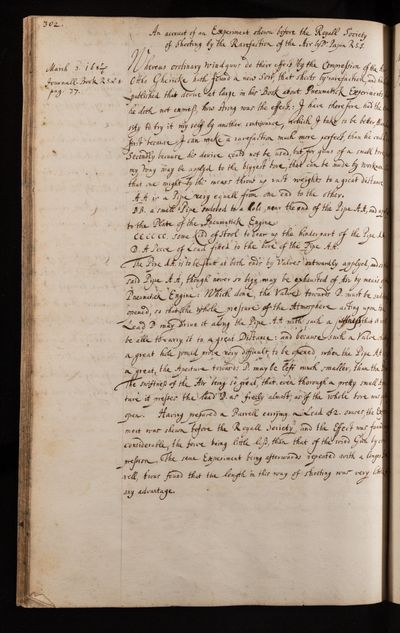 302.
An account of an Experiment shown before the Royall Society
of Shooting by the Rarefaction of the Air by Dr Papin R.S.S.
March 3. 168
Journall Book R.S.
pag. 77.
Whereas ordinary Windguns do their effect by the Compression of the Air
Otho Ghericke hath found a new Sort, that shoots by rarefaction, and
published that device at large in his Book about Pneumatick Experiments
he doth not express how strong was the effect: I have therefore had the
to try it my self by another contrivance, which I take to be better
first because I can make a rarefaction much more perfect than he could
Secondly because his device could not be used, but for guns of a small bore
my way may be applyed to the biggest bore, that can be made by workmen
that one might by this means throw up vast weights to a great distance
AA is a Pipe very equall from one end to the other.
BB. a small Pipe soldered to a hole near the end of the Pipe AA, and
to the Plate of the Pneumatick Engine
CCCCCC. some of Steel to bear up the hinder part of the Pipe AA
D A Piece of Lead fitted to the bore of the Pipe AA.
The Pipe AA is to be shut at both ends by Valves outwardly applyed, and
said Pipe AA, though never so big, may be exhausted of Air by means of
Pneumatick Engine: Which done, the Valve towards D. must be
opened, so that the whole pressure of the Atmosphere acting upon the
Lead D may drive it along the Pipe AA with such a swiftness that it
be able to carry it to a great Distance: and because such a Valve
a great hole would prove very difficult to be opened when the Pipe AA
a great, the Aperture towards D. may be left much smaller, than the
The swiftness of the Air being so great, that even thorough a pretty small
ture it presses the Lead D as freely almost, as if the whole bore was
open. Having prepared a Barrell carrying a Lead of 2. ounces the
ment was shown before the Royall Society and the Effect was found
considerable, the force being little less, than that of the Wind Gun by
pression. The same Experiment being afterwards repeated with a longer
rell, twas found that the length in this way of shooting was very little
any advantage.